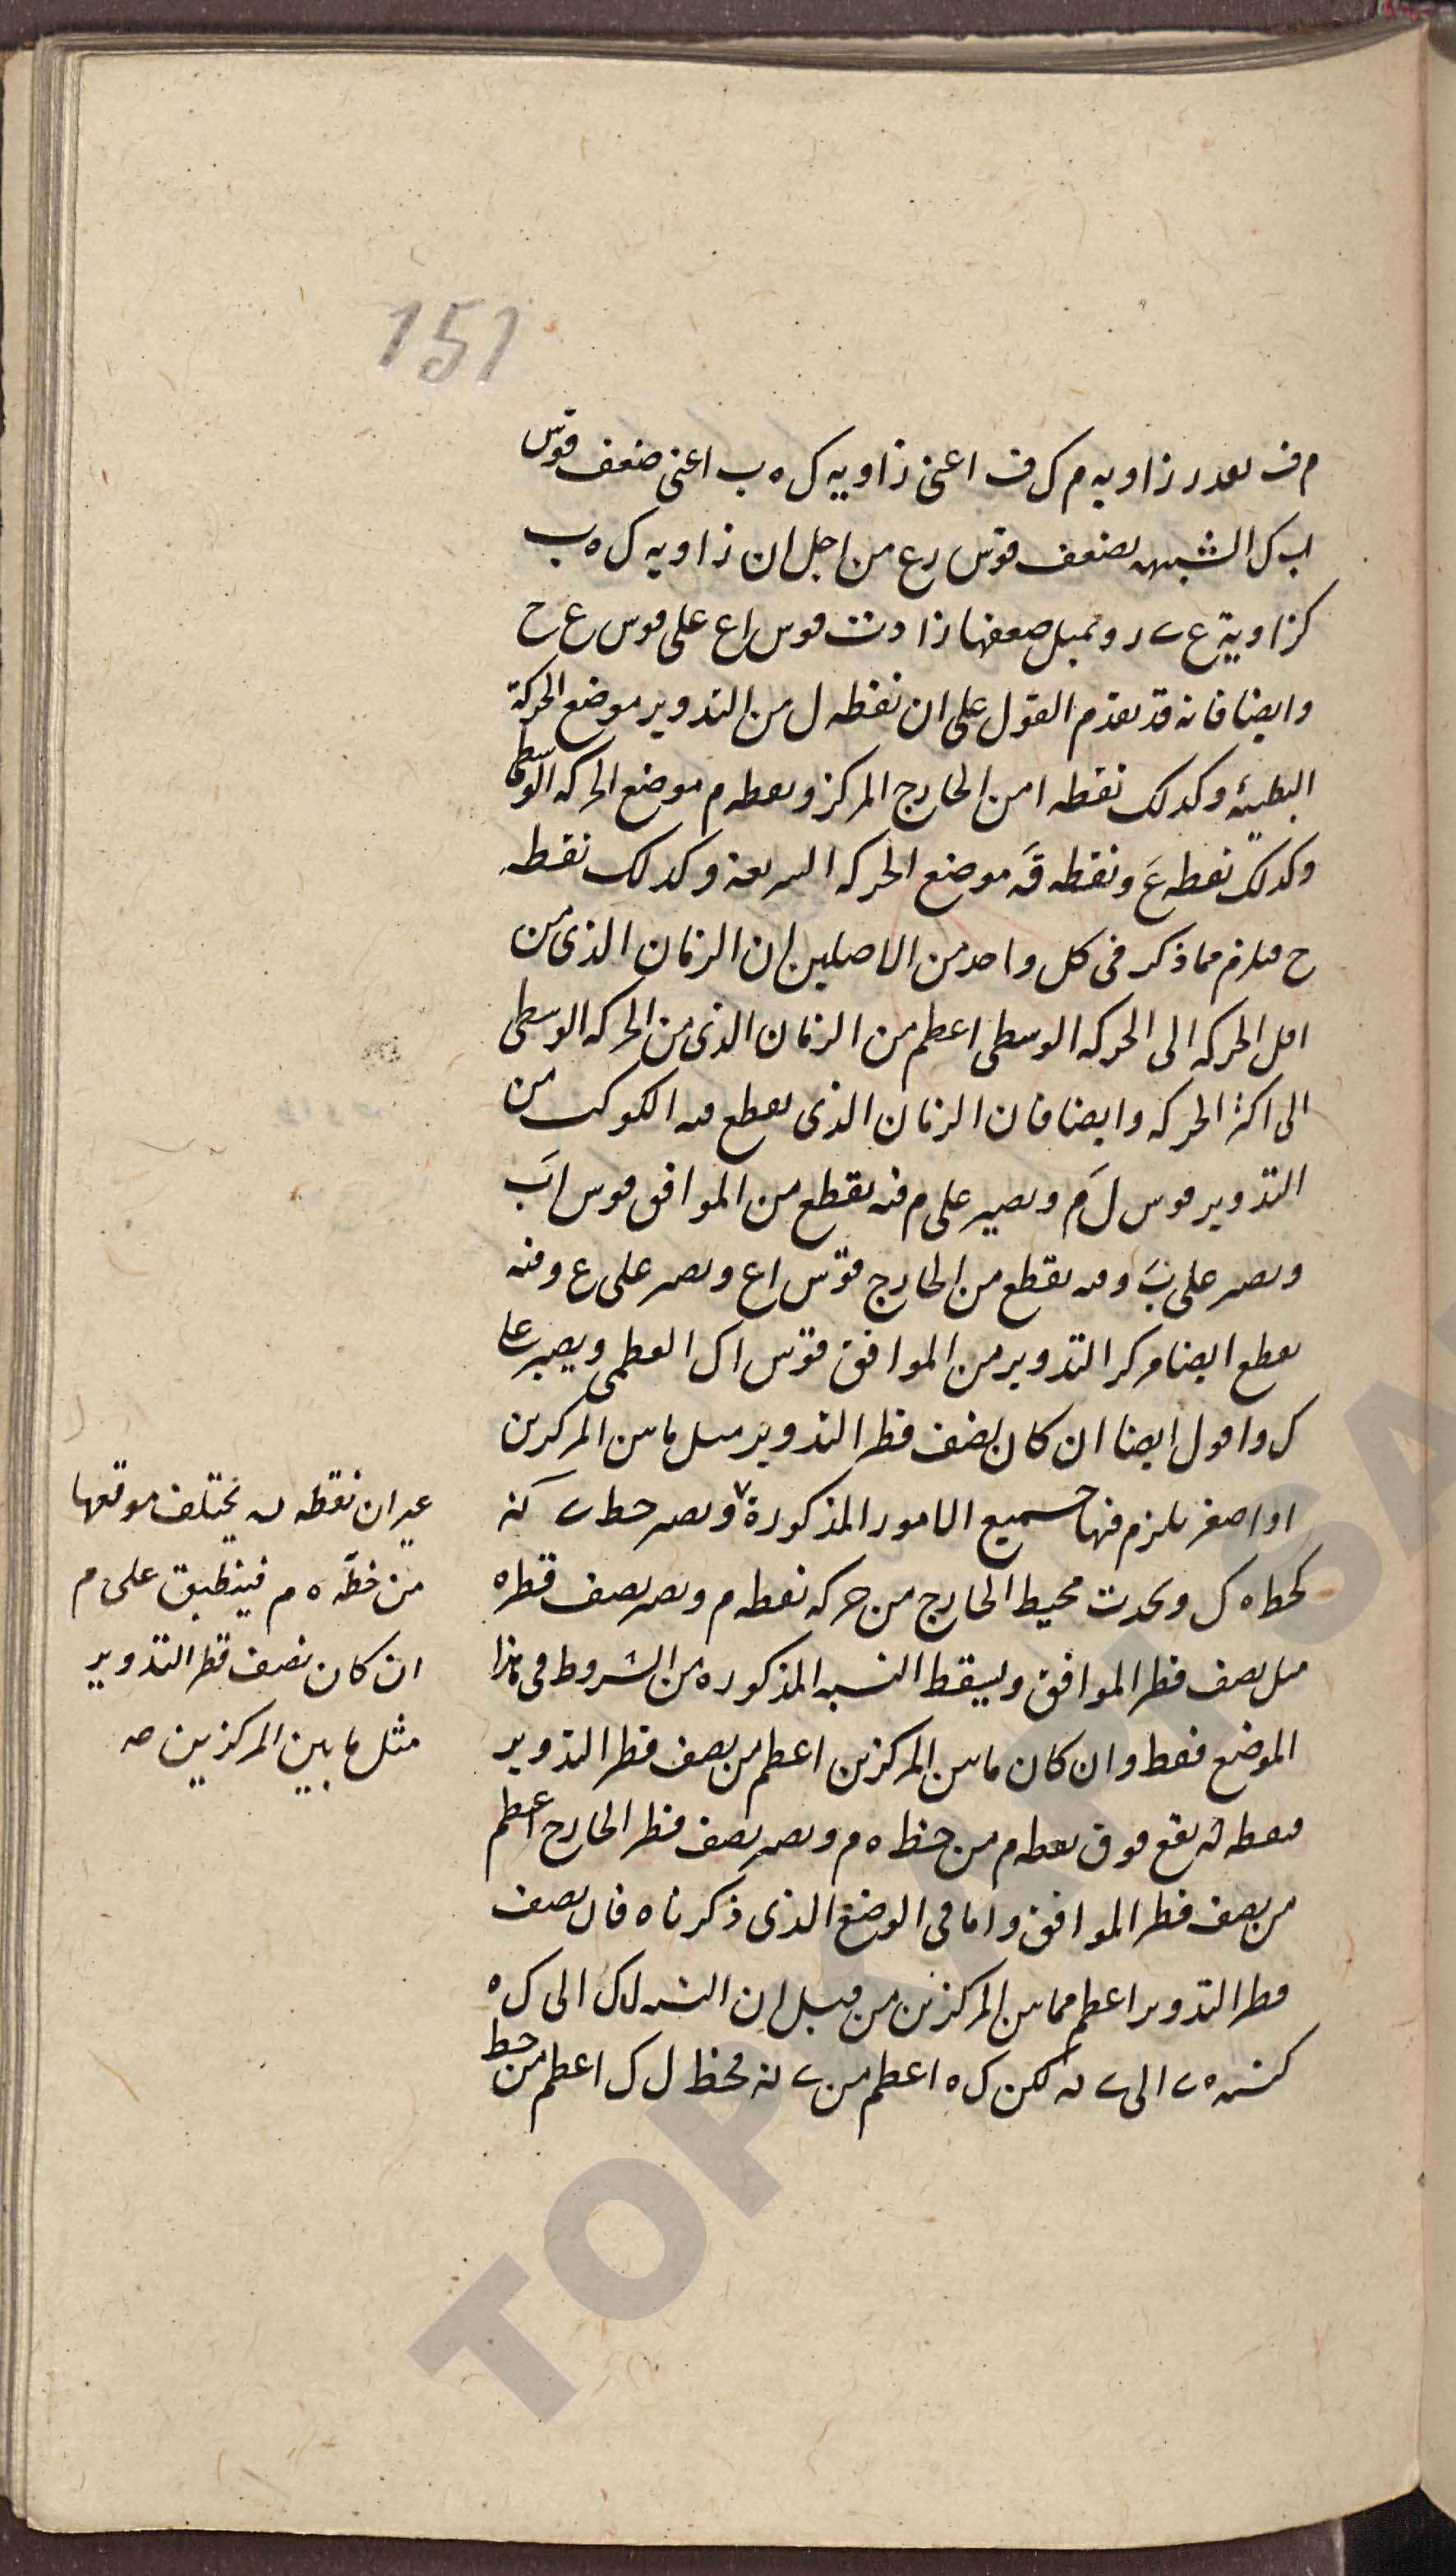 151
م ف بقدر زاوية م ك ف اعنى زاويه ك ه ب اعنى ضعف قوس
اب ك الشبيهه بضعف قوس رع من اجل ان زاويه ك ه ب
كزاوية ع ى ر وبمثل ضعفها زادت قوس اع على قوس ع ح
وايضا فانه قد تقدم القول على ان نقطه ل من التدوير موضع الحركة
البطيئه وكذلك نقطه ا من الخارج المركز ونقطه م موضع الحركه الوسطى
وكذلك نقطه ع ونقطه ق موضع الحركه السريعه وكذلك نقطه
ح فلزم مما ذكر فى كل واحد من الاصلين ان الزمان الذى من
اقل الحركه الى الحركه الوسطى اعظم من الزمان الذى من الحركه الوسطى
الى اكثر الحركه وايضا فان الزمان الذى يقطع فيه الكوكب من
التدوير قوس ل م ويصير على م فيه يقطع من الموافق قوس اب
ويصير على ب وفيه يقطع من الخارج قوس اع ويصير على ع وفيه
يقطع ايضا مركز التدوير من الموافق قوس اك العظمى ويصير على
ك واقول ايضا ان كان نصف قطر التدوير مثل ما بين المركزين
او اصغر يلزم فيها جميع الامور المذكورة ويصير خط ى ن
كخط ه ك ويحدث محيط الخارج من حركه نقطه م ويصير نصف قطره
مثل نصف قطر الموافق ويسقط النسبه المذكوره من الشروط فى هذا
الموضع فقط وان كان ما بين المركزين اعظم من نصف قطر التدوير
فنقطه ن يقع فوق نقطه م من خط ه م ويصير نصف قطر الخارج اعظم
من نصف قطر الموافق واما فى الوضع الذى ذكرناه فان نصف
قطر التدوير اعظم مما بين المركزين من قبل ان نسبه ل ك الى ك ه
كنسبه ه ى الى ى ن لكن ك ه اعظم من ى ن فخط ل ك اعظم من خط
غير ان نقطه ن يختلف موقعها
من خط ه م فينطبق على م
ان كان نصف قطر التدوير
مثل ما بين المركزين صه